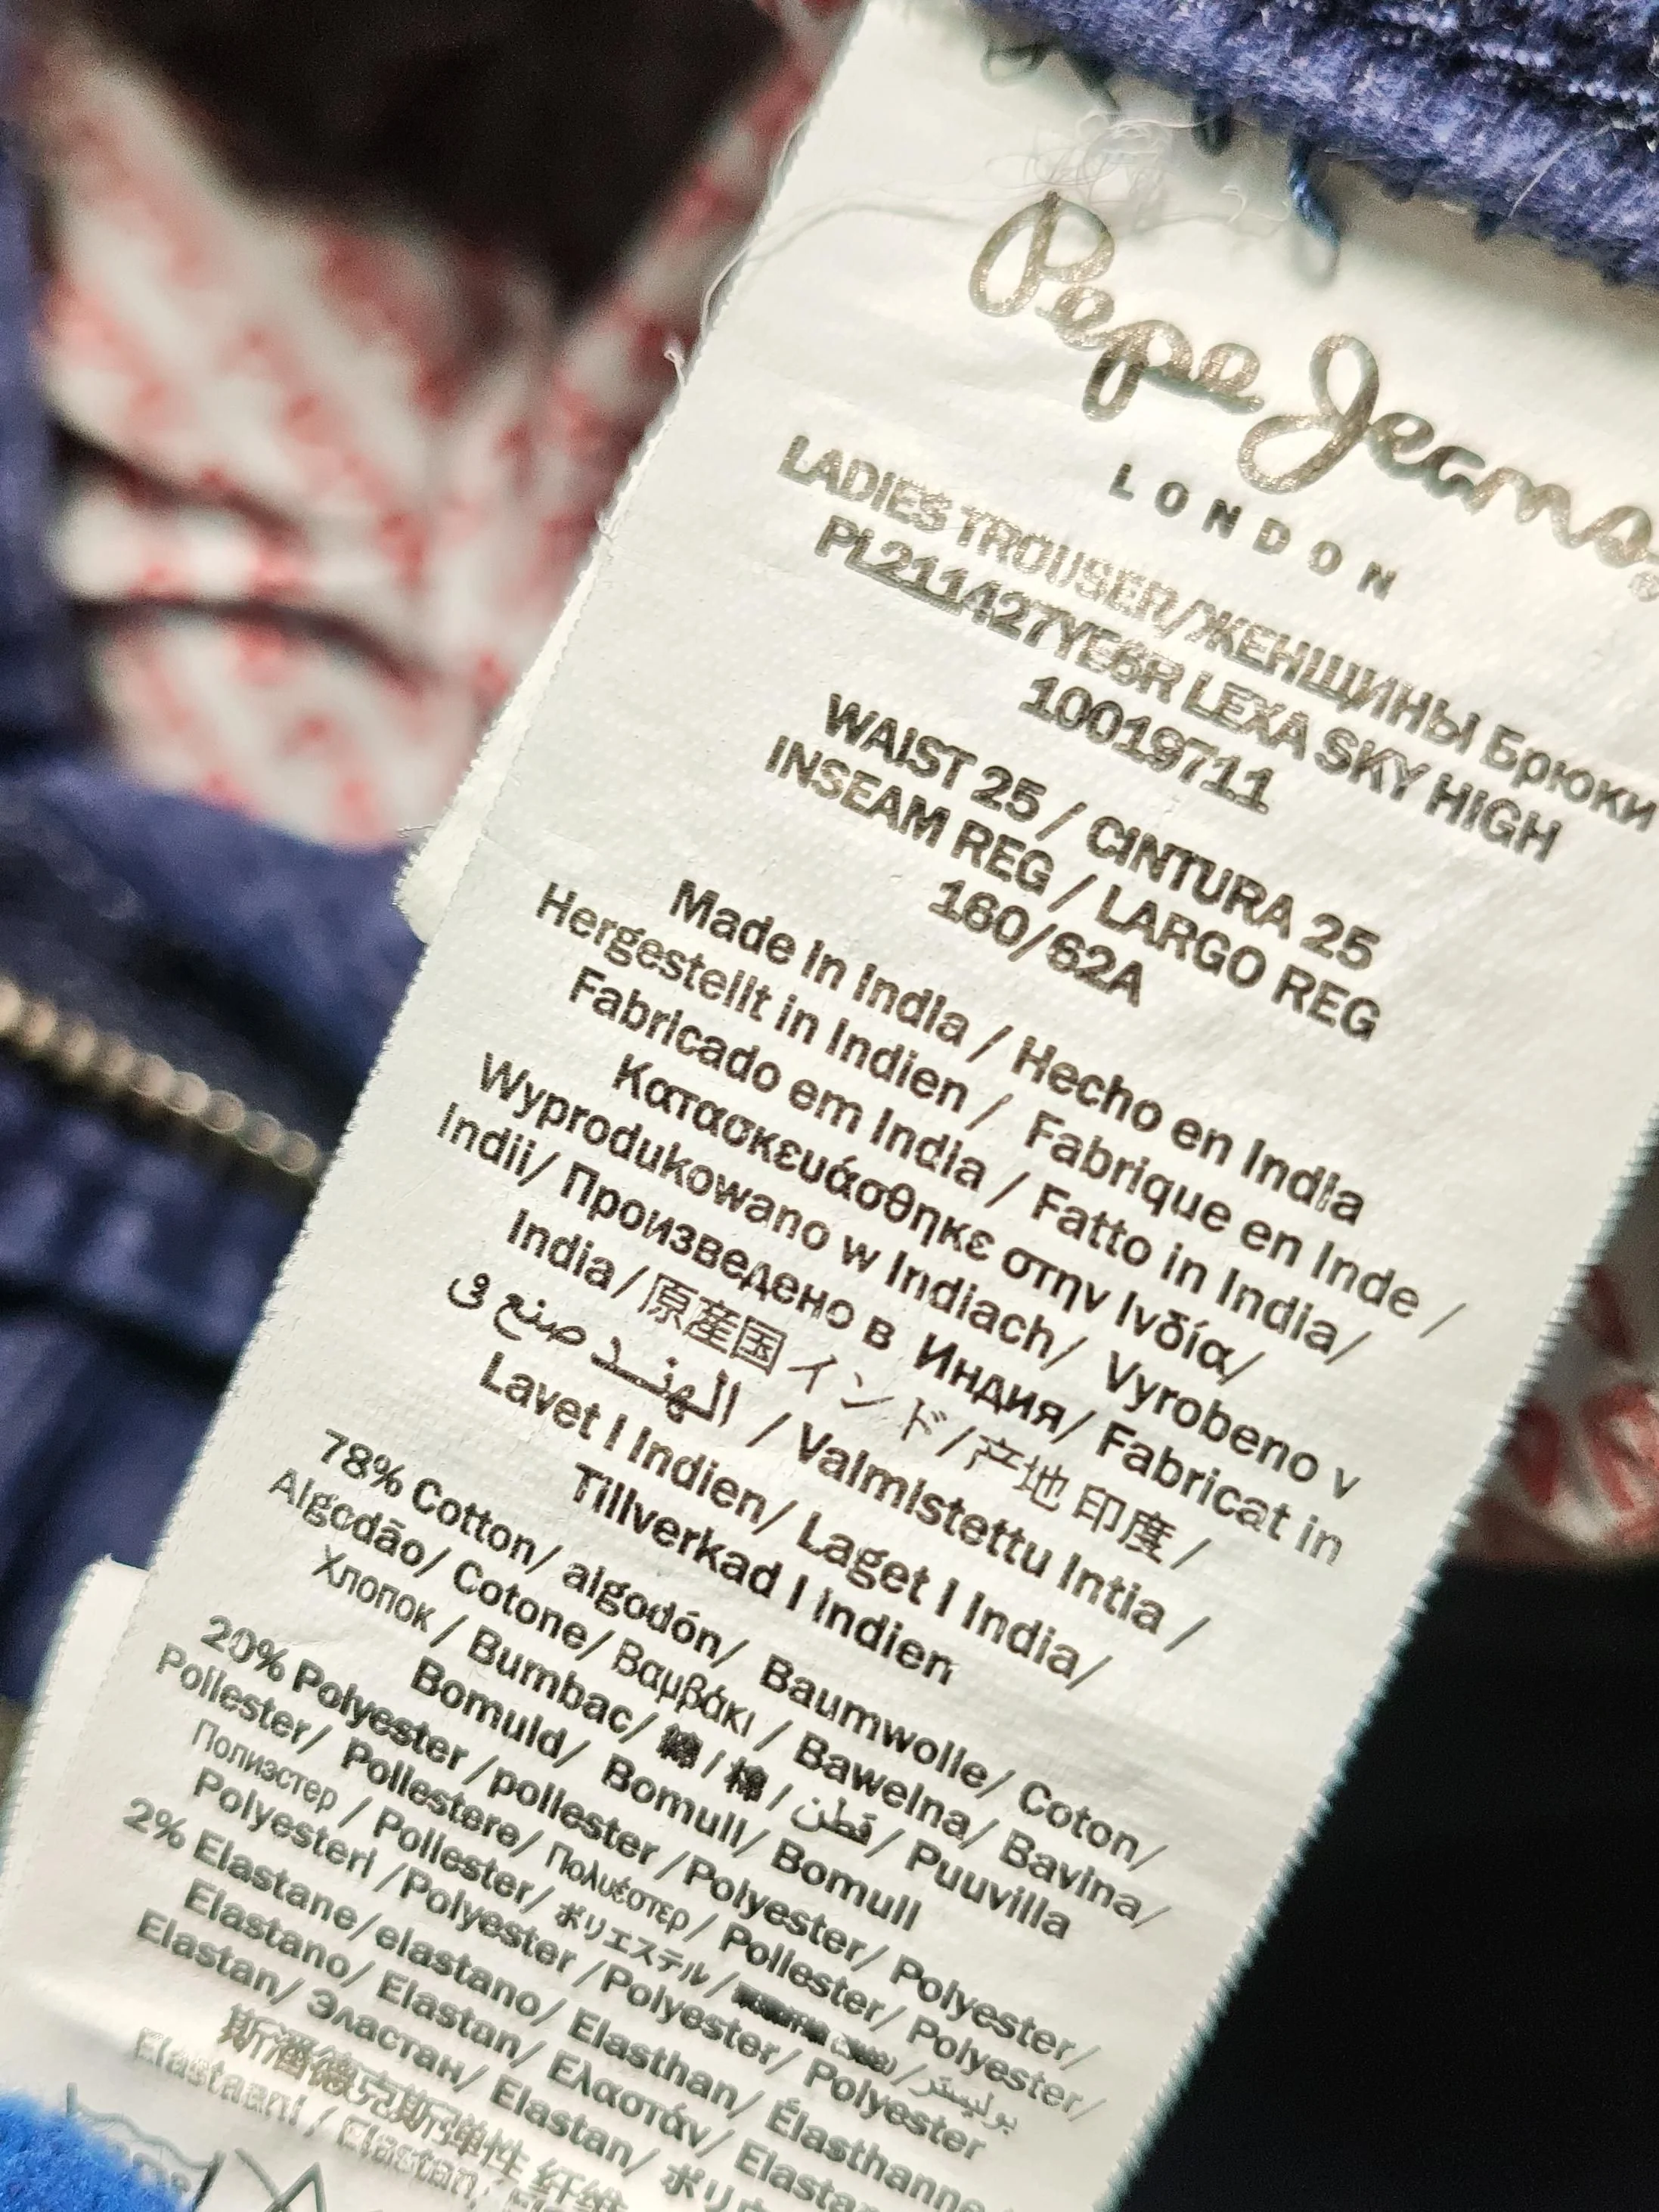 Pepe Jeans®
LONDON
LADIES TROUSER/ЖЕНЩИНЫ Брюки
PL211427YE6R LEXA SKY HIGH
10019711
WAIST 25 / CINTURA 25
INSEAM REG / LARGO REG
160/62A
Made in India / Hecho en India
Hergestellt in Indien / Fabrique en Inde /
Fabricado em India / Fatto in India/
Κατασκευάσθηκε στην Ινδία/
Wyprodukowano w Indiach/ Vyrobeno v
Indii/ Произведено в Индия/ Fabricat in
India/原産国 インド/产地 印度 /
الهند صنع في / Valmistettu Intia /
Lavet I Indien/ Laget I India/
Tillverkad I Indien
78% Cotton/ algodón/ Baumwolle/ Coton/
Algodão/ Cotone/ Βαμβάκι / Bawelna/ Bavlna/
Хлопок / Bumbac/ 綿 / 棉 / قطن / Puuvilla
Bomuld/ Bomull/ Bomull
20% Polyester /poliester /Polyester/ Polyester/
Poliester/ Poliestere/ Πολυέστερ/ Poliester/ Polyester/
Полиэстер / Poliester/ ポリエステル / بوليستر
Polyesteri /Polyester /Polyester/ Polyester
2% Elastane/elastano/ Elasthan/ Élasthanne
Elastano/ Elastan/ Ελαστάν/ Elastan
Elastan/ Эластан/ Elastan/ ポリウ
斯潘德克斯弹性 纤维
Elastaani / Elastan/